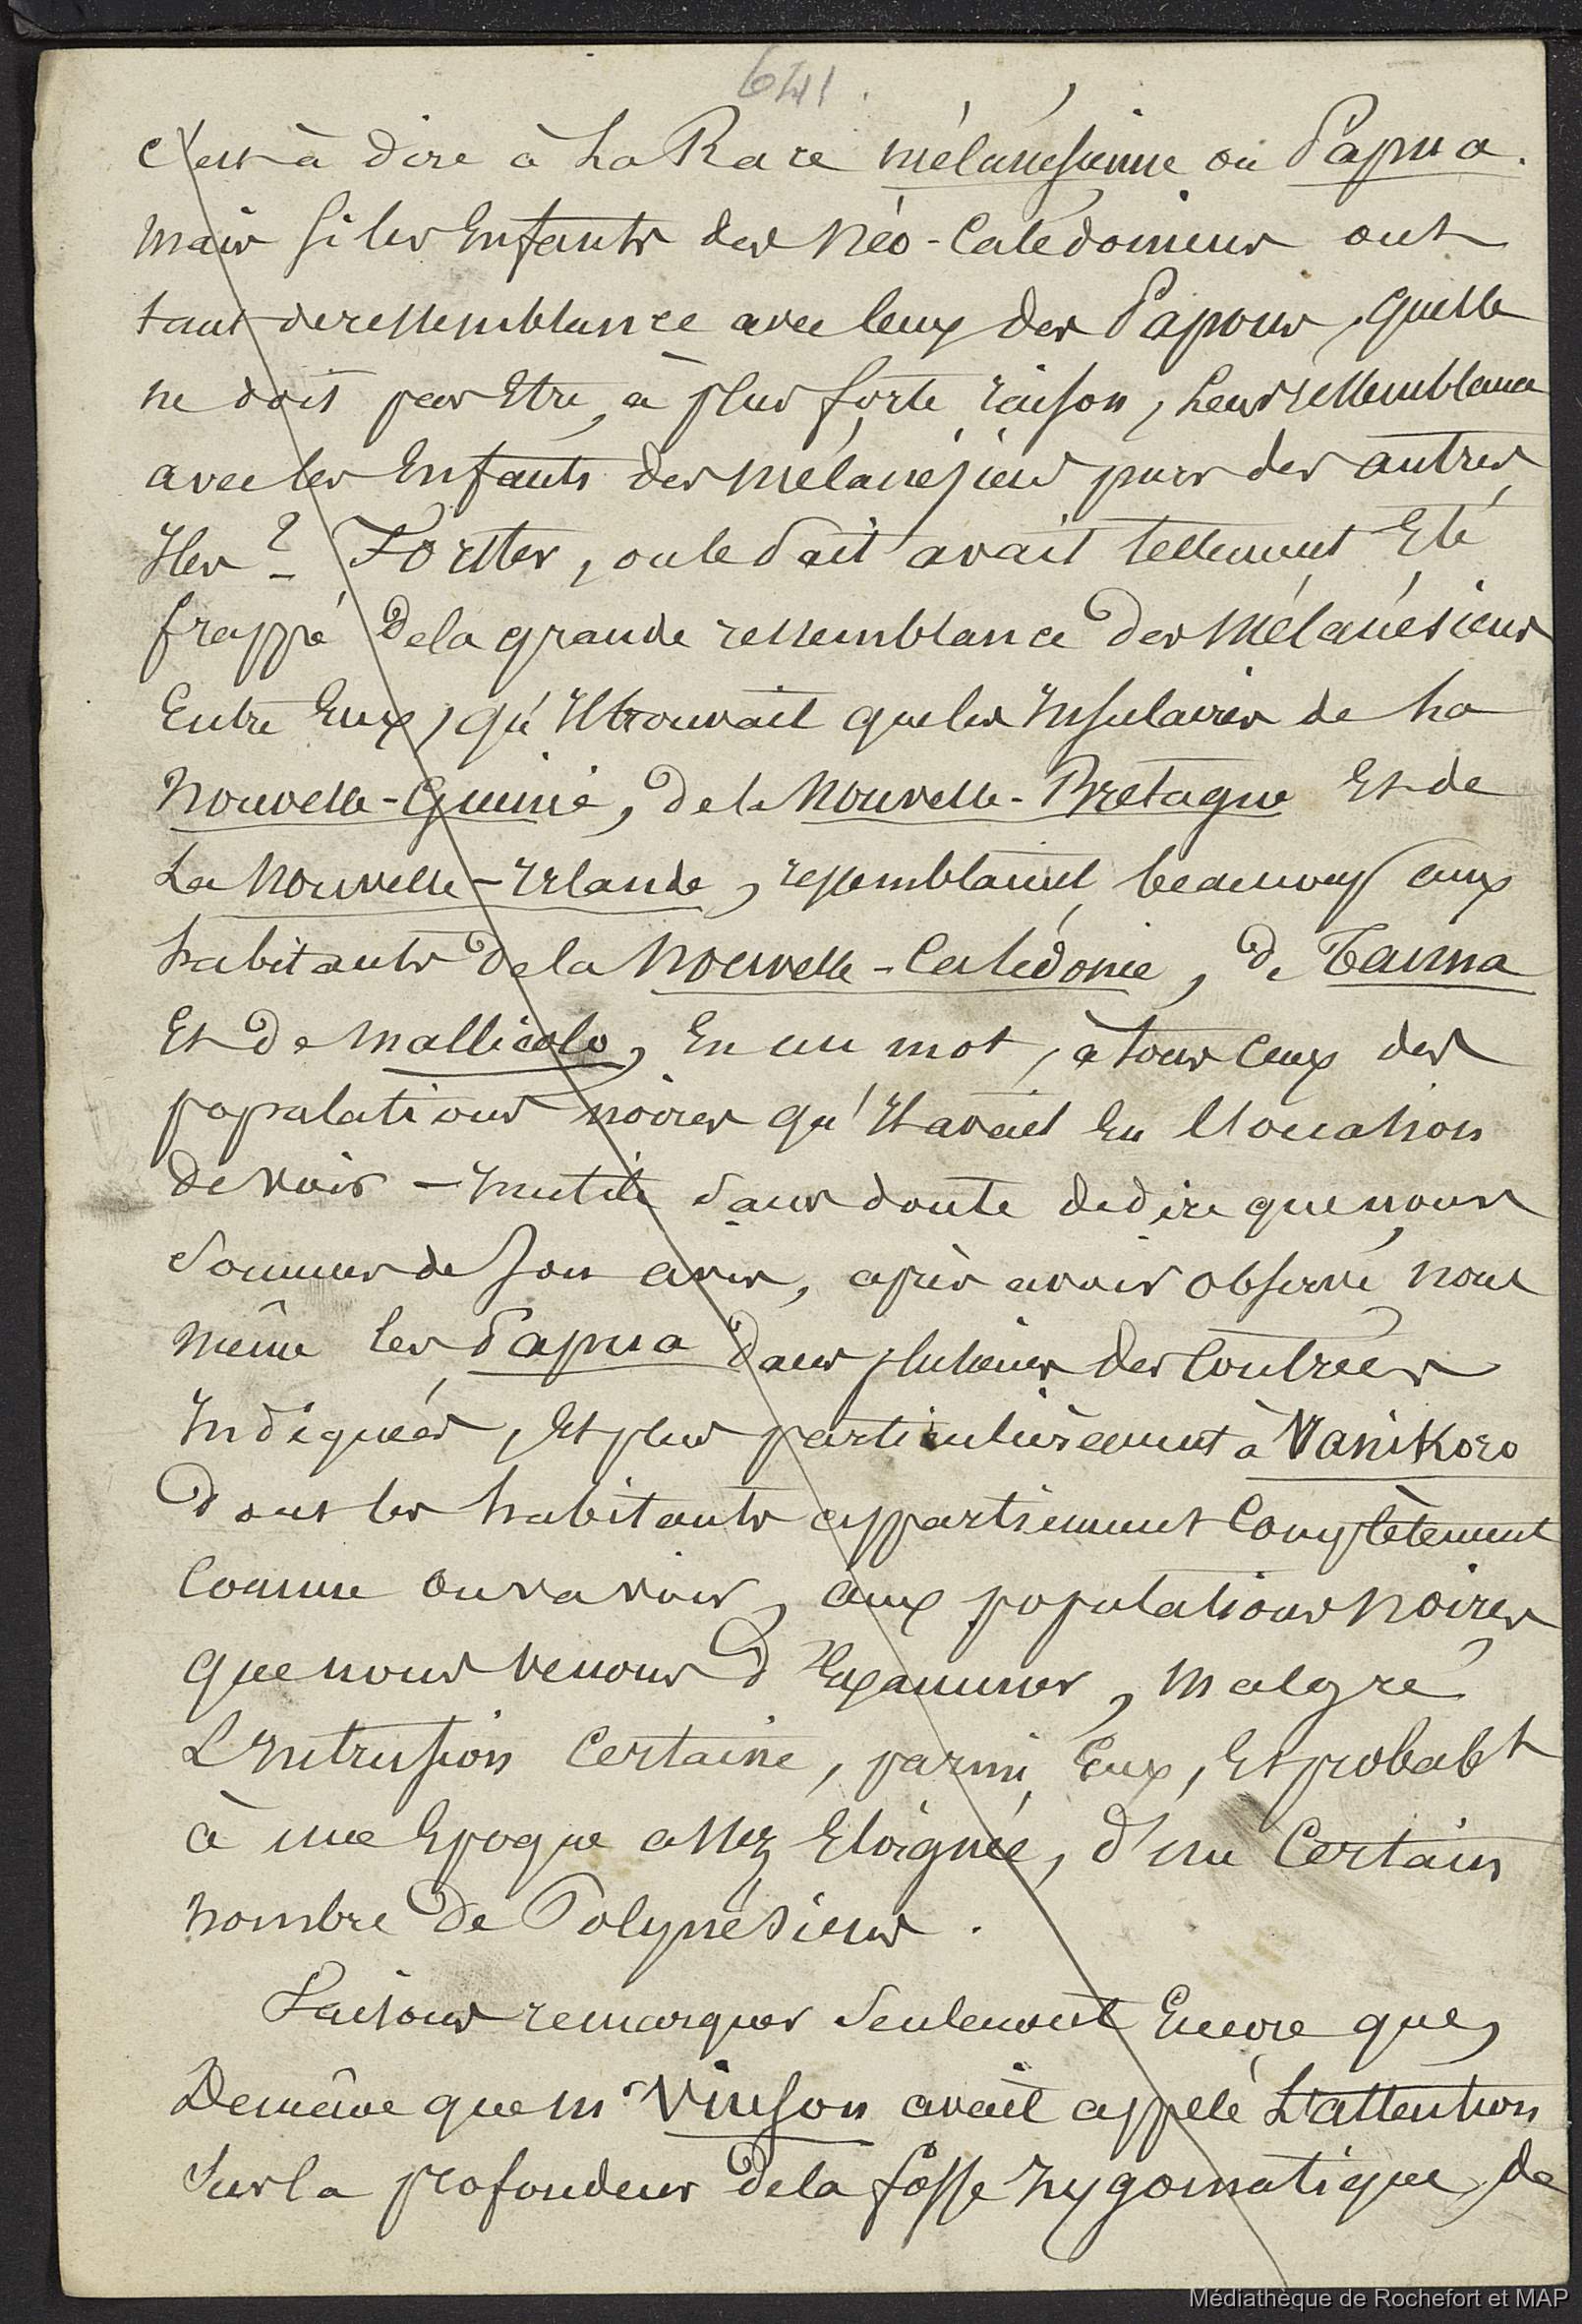 641.
c'est à dire à La Race mélanésienne ou Papua.
mais si les Enfants des Néo-Calédoniens ont
tant de ressemblance avec ceux des Papous, quelle
ne doit pas Etre, à plus forte raison, Leur ressemblance
avec les Enfants des Mélanésiens purs des autres
Iles ? Forster, on le sait avait tellement Eté
frappé de la grande ressemblance des Mélanésiens
Entre Eux, qu'Il trouvait que les Insulaires de La
Nouvelle-Guinée, de la Nouvelle-Bretagne Et de
La Nouvelle-Irlande, ressemblaient beaucoup aux
habitants de la Nouvelle-Calédonie, de Tanna
Et de Mallicolo, En un mot, à tous ceux des
populations noires qu'Il avait Eu l'occasion
de voir - Inutile sans doute de dire que nous
Sommes de son avis, après avoir observé nous
même les Papua dans plusieurs des Contrées
Indiquées, Et plus particulièrement à Vanikoro
dont les habitants appartiennent Complètement
Comme on va voir, aux populations noires
que nous venons d'Examiner, malgré
L'Intrusion Certaine, parmi Eux, Et probabt
à une Epoque assez Eloignée, d'un Certain
nombre de Polynésiens.
Faisons remarquer seulement Encore que,
De même que mr Vinson avait appelé L'attention
sur la profondeur de la fosse zygomatique de
Médiathèque de Rochefort et MAP